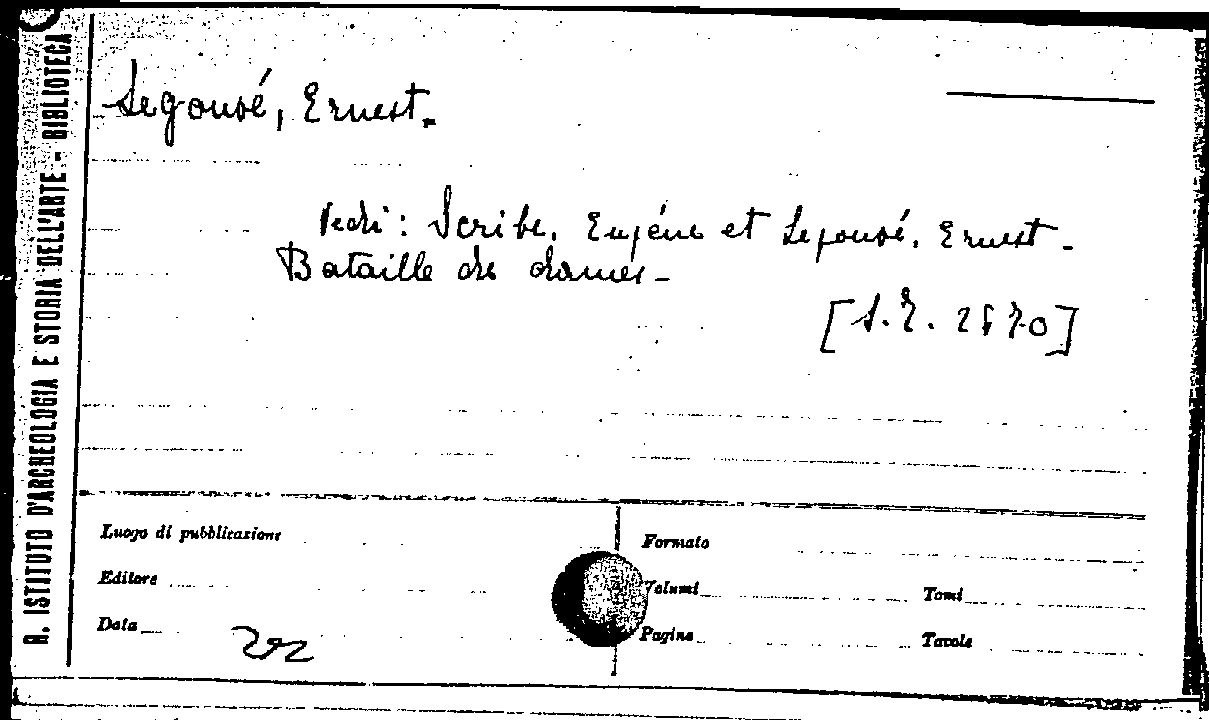 R. ISTITUTO D'ARCHEOLOGIA E STORIA DELL'ARTE - BIBLIOTECA
Legouvé, Ernest.
Vedi: Scribe, Eugène et Legouvé, Ernest -
Bataille de dames -
Luogo di pubblicazione
Editore
Data
Formato
Volumi Tomi
Pagine Tavole